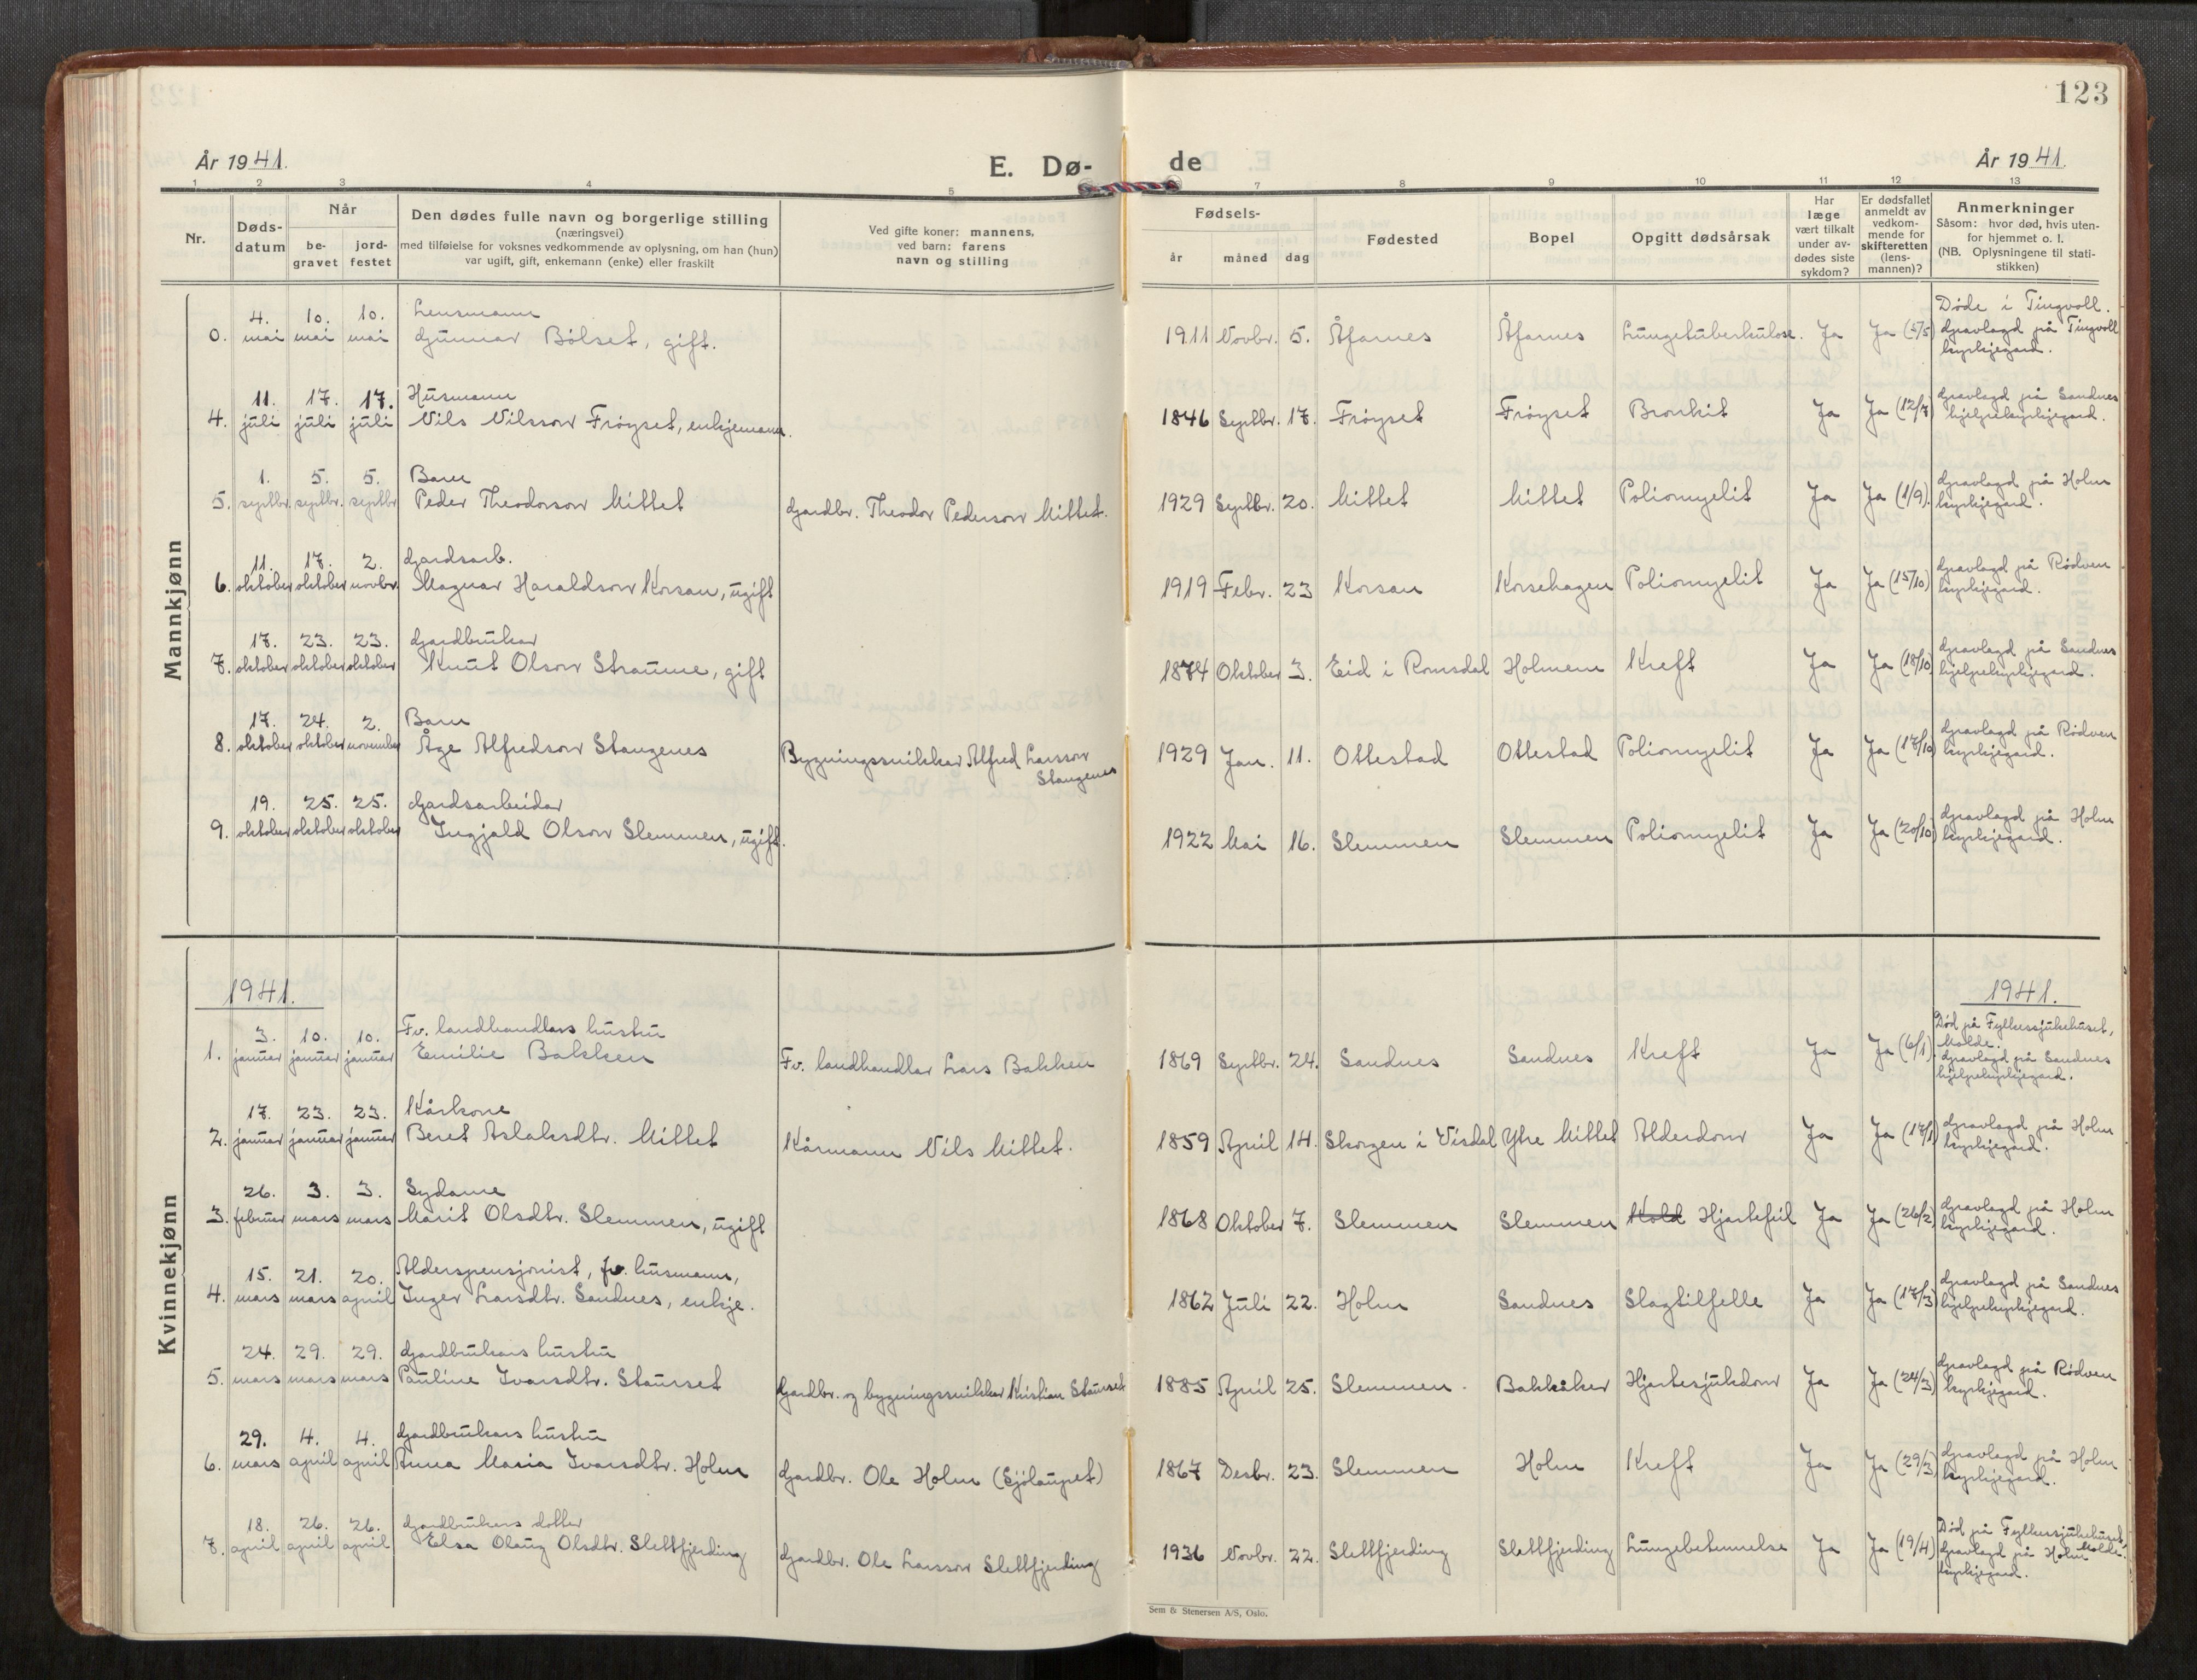 123
År 1941.
E. Dø-
de
År 1941.
1 2 3 4 5 7 8 9 10 11 12 13
Nr.
Døds-
datum
Når
be-
gravet
jord-
festet
Den dødes fulle navn og borgerlige stilling
(næringsvei)
med tilføielse for voksnes vedkommende av oplysning, om han (hun)
var ugift, gift, enkemann (enke) eller fraskilt
Ved gifte koner: mannens,
ved barn: farens
navn og stilling
Fødsels-
år måned dag
Fødested
Bopel
Opgitt dødsårsak
Har
læge
vært tilkalt
under av-
dødes siste
sykdom?
Er dødsfallet
anmeldt av
vedkom-
mende for
skifteretten
(lens-
mannen)?
Anmerkninger
Såsom: hvor død, hvis uten-
for hjemmet o. l.
(NB. Oplysningene til stati-
stikken)
Mannkjønn
4. 10. 10. Lensmann
0. mai mai mai Gunnar Bölset, gift. 1911 Novbr. 5. Åfarnes Åfarnes Lungetuberkulose. Ja Ja (5/5)
Døde i Tingvoll.
Gravlagd på Tingvoll
kyrkjegard.
11. 17. 17. Husmann
4. juli juli juli Nils Nilsson Fröyset, enkjemann. 1846 Septbr. 17. Fröyset Fröyset Bronkit Ja Ja (12/7)
Gravlagd på Sandnes
hjelpekyrkjegard.
1. 5. 5. Barn
5. septbr. septbr. septbr Peder Theodorson Mittet Gardbr. Theodor Pederson Mittet. 1929 Septbr. 20. Mittet Mittet Poliomyelit Ja Ja (1/9).
Gravlagd på Holm
kyrkjegard.
11. 17. 2. Gardsarb.
6. oktober oktober novbr Magnar Haraldson Korsan, ugift 1919 Febr. 23 Korsan Korsehagen Poliomyelit Ja Ja (15/10)
Gravlagd på Rødven
kyrkjegard.
17. 23. 23. Gardbrukar
7. oktober oktober oktober Knut Olson Straume, gift 1874 Oktober 3. Eid i Romsdal Holmem Kreft Ja Ja (18/10)
Gravlagd på Sandnes
hjelpekyrkjegard.
17. 24. 2. Barn
8. oktober oktober november Åge Alfredson Stangenes Bygningssnikkar Alfred Larsson
Stangenes
1929 Jan. 11. Ottestad Ottestad Poliomyelit Ja Ja (17/10)
Gravlagd på Rødven
kyrkjegard.
19. 25. 25. Gardsarbeidar
9. oktober oktober oktober Ingjald Olson Slemmen, ugift. 1922 Mai 16. Slemmen Slemmen Poliomyelit Ja Ja (20/10)
Gravlagd på Holm
kyrkjegard.
Kvinnekjønn
1941. 1941.
3. 10. 10. Fv. landhandlars hustru
1. januar januar januar Emilie Bakken Fv. landhandlar Lars Bakken 1869 Septbr. 24. Sandnes Sandnes Kreft Ja Ja (6/1).
Død på Fylkessjukehuset,
Molde.
Gravlagd på Sandnes
hjelpekyrkjegard.
17. 23. 23. Kårkone
2. januar januar januar Beret Aslaksdtr. Mittet Kårmann Nils Mittet. 1859 April 14. Skorgen i Visdal Ytre Mittet Alderdom Ja Ja (17/1)
Gravlagd på Holm
kyrkjegard.
26. 3. 3. Sydame
3. februar mars mars Marit Olsdtr. Slemmen, ugift 1868 Oktober 7. Slemmen Slemmen Kold Hjartefeil Ja Ja (26/2)
Gravlagd på Holm
kyrkjegard.
15. 21. 20. Alderspensjonist, fv. husmann,
4. mars mars april Inger Larsdtr. Sandnes, enkje. 1862 Juli 22. Holm Sandnes Slagtilfelle Ja Ja (17/3)
Gravlagd på Sandnes
hjelpekyrkjegard.
24. 29. 29. Gardbrukars hustru
5. mars mars mars Pauline Ivarsdtr. Staurset Gardbr. og bygningssnikkar Kristian Staurset 1885 April 25. Slemmen. Bakkåker Hjartesjukdom Ja Ja (24/3)
Gravlagd på Rødven
kyrkjegard.
29. 4. 4. Gardbrukars hustru
6. mars april april Anna Maria Ivarsdtr. Holm Gardbr. Ole Holm (Sjölaupet) 1867 Desbr. 23. Slemmen Holm Kreft Ja Ja (29/3)
Gravlagd på Holm
kyrkjegard.
18. 26. 26. Gardbrukars dotter
7. april april april Elsa Olaug Olsdtr. Slettfjerding Gardbr. Ole Larsson Slettfjerding 1936 Novbr. 22. Slettfjerding Slettfjerding Lungebetennelse Ja Ja (19/4)
Død på Fylkessjukehuset,
Molde.
Gravlagd på Holm
kyrkjegard.
Sem & Stenersen A/S, Oslo.